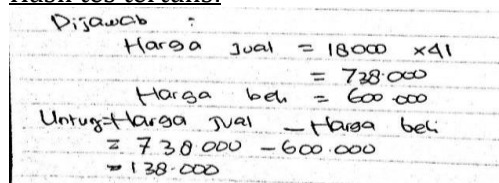 Hasil tes tertulis:
Dijawab :
Harga Jual = 18000 ×41
= 738.000
Harga beli = 600.000
Untung=Harga Jual – Harga beli
= 738.000 – 600.000
= 138.000